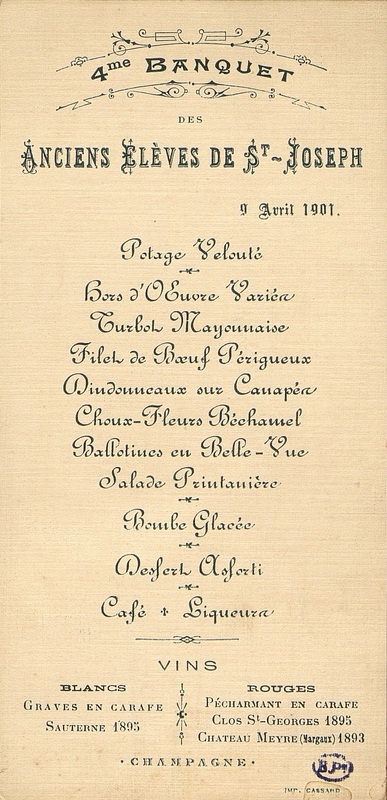 4me BANQUET
DES
ANCIENS ELÈVES DE ST-JOSEPH
9 Avril 1901.
Potage Velouté
Hors d'OEuvre Variés
Turbot Mayonnaise
Filet de Bœuf Périgueux
Dindonneaux sur Canapés
Choux-Fleurs Béchamel
Ballotines en Belle-Vue
Salade Printanière
Bombe Glacée
Deſſert Aſſorti
Café + Liqueurs
VINS
BLANCS
GRAVES EN CARAFE
SAUTERNE 1895
ROUGES
PÉCHARMANT EN CARAFE
CLOS St-GEORGES 1895
CHATEAU MEYRE (Margaux) 1893
· CHAMPAGNE ·
IMP. CASSARD